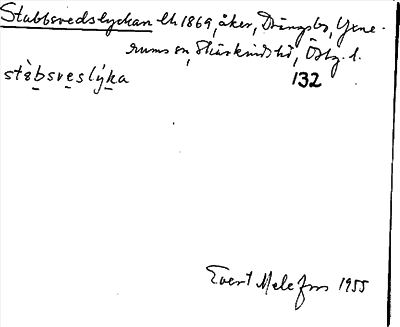 Stubbsvedslyckan lh 1869, åker, Drängsbo, Yxne-
rums sn, Skärkinds hd, Östg. l.
stèbsveslýka 132
Evert Melefors 1955